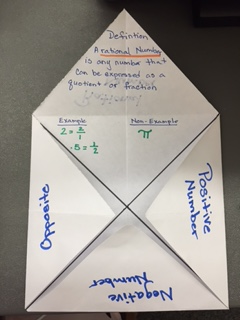 Definition
A rational Number
is any number that
can be expressed as a
quotient or fraction
Example
2 = 2/1
.5 = 1/2
Non-Example
π
Opposite
Positive
Number
Negative
Number